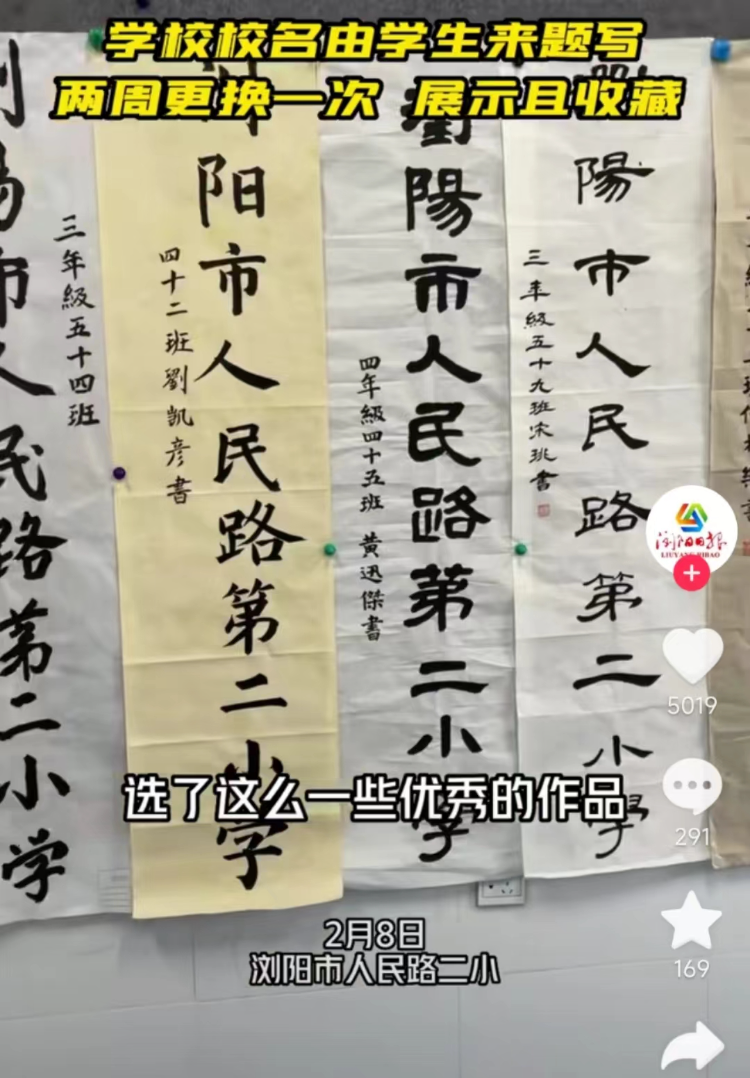 学校校名由学生来题写
两周更换一次 展示且收藏
市人民路第二小学
三年級五十四班
阳市人民路第二小学
四十二班劉凯彦書
瀏陽市人民路第二小學
四年級四十五班 黄迅傑書
陽市人民路第二小學
三年級五十九班宋珧書
浏阳日报
LIUYANG RIBAO
5019
291
169
选了这么一些优秀的作品
2月8日
浏阳市人民路二小